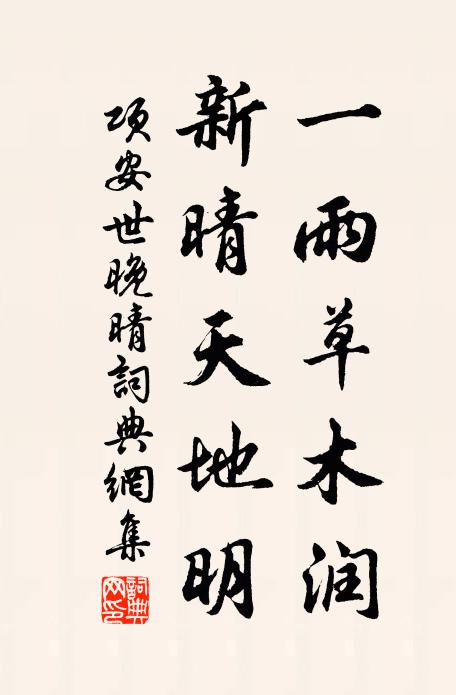 一雨草木润
新晴天地明
项安世晚晴詞典網集
詞典网印